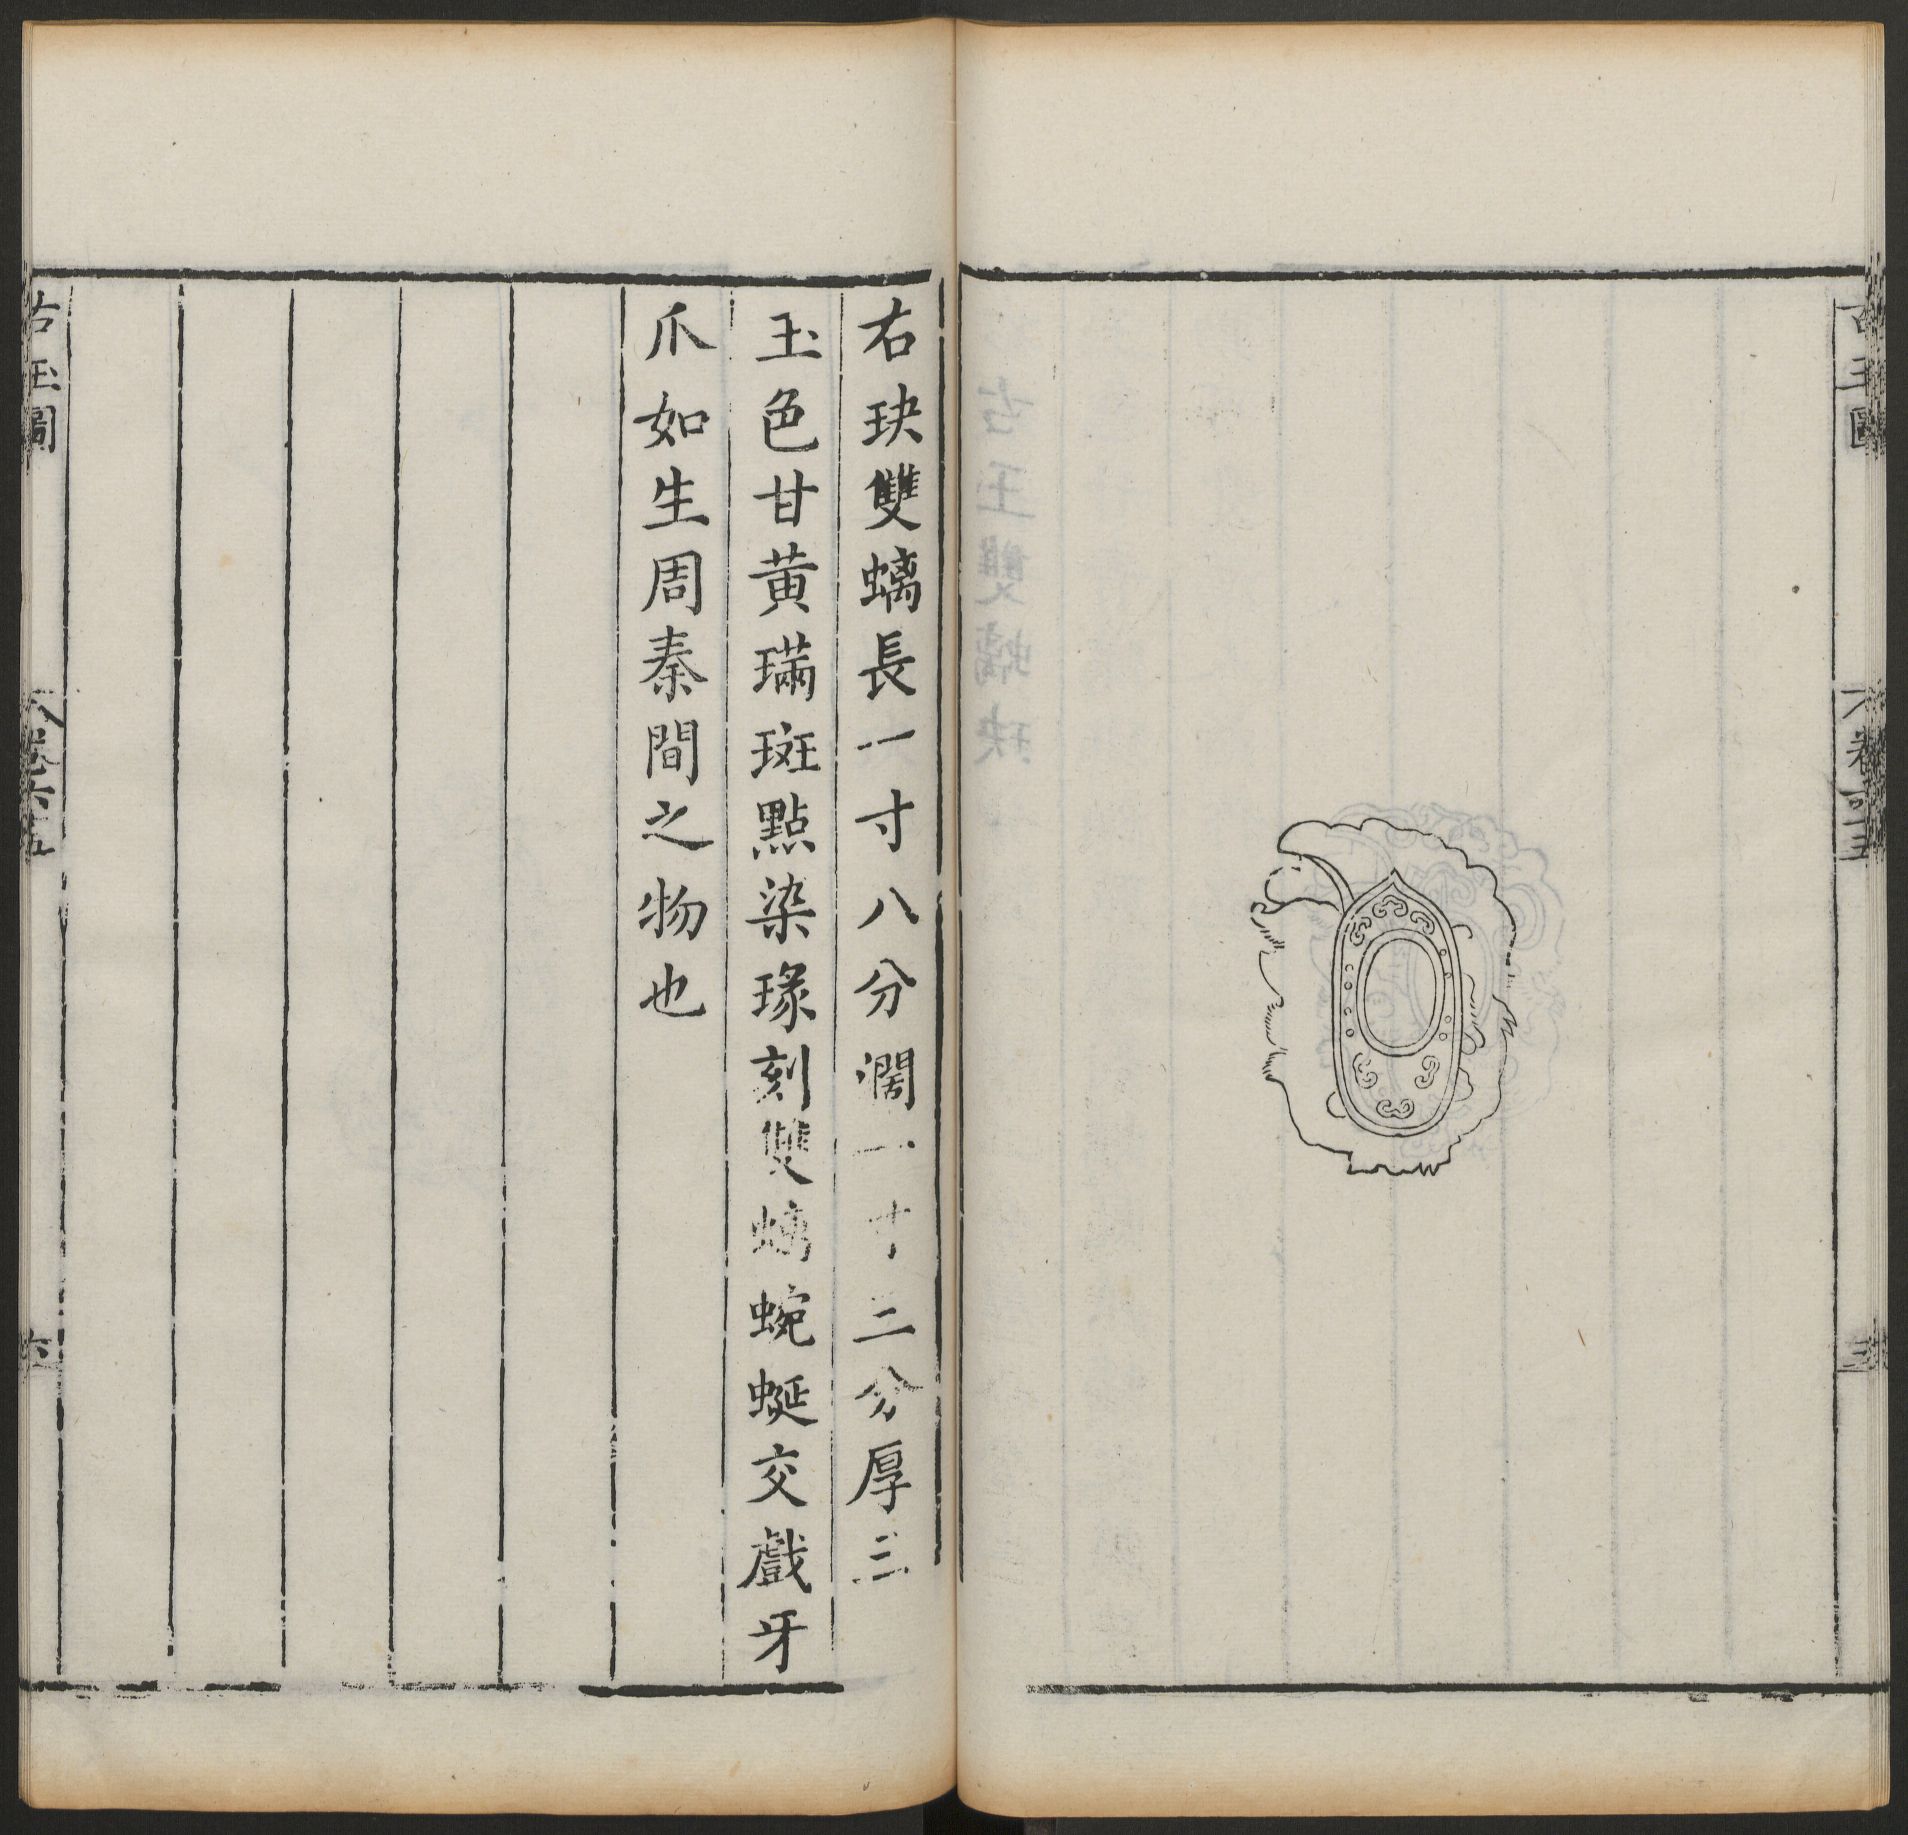 古玉圖
右玦雙螭長一寸八分濶一寸二分厚三
玉色甘黃璊斑點染瑑刻雙螭蜿蜒交戲牙
爪如生周秦間之物也
古玉圖
六